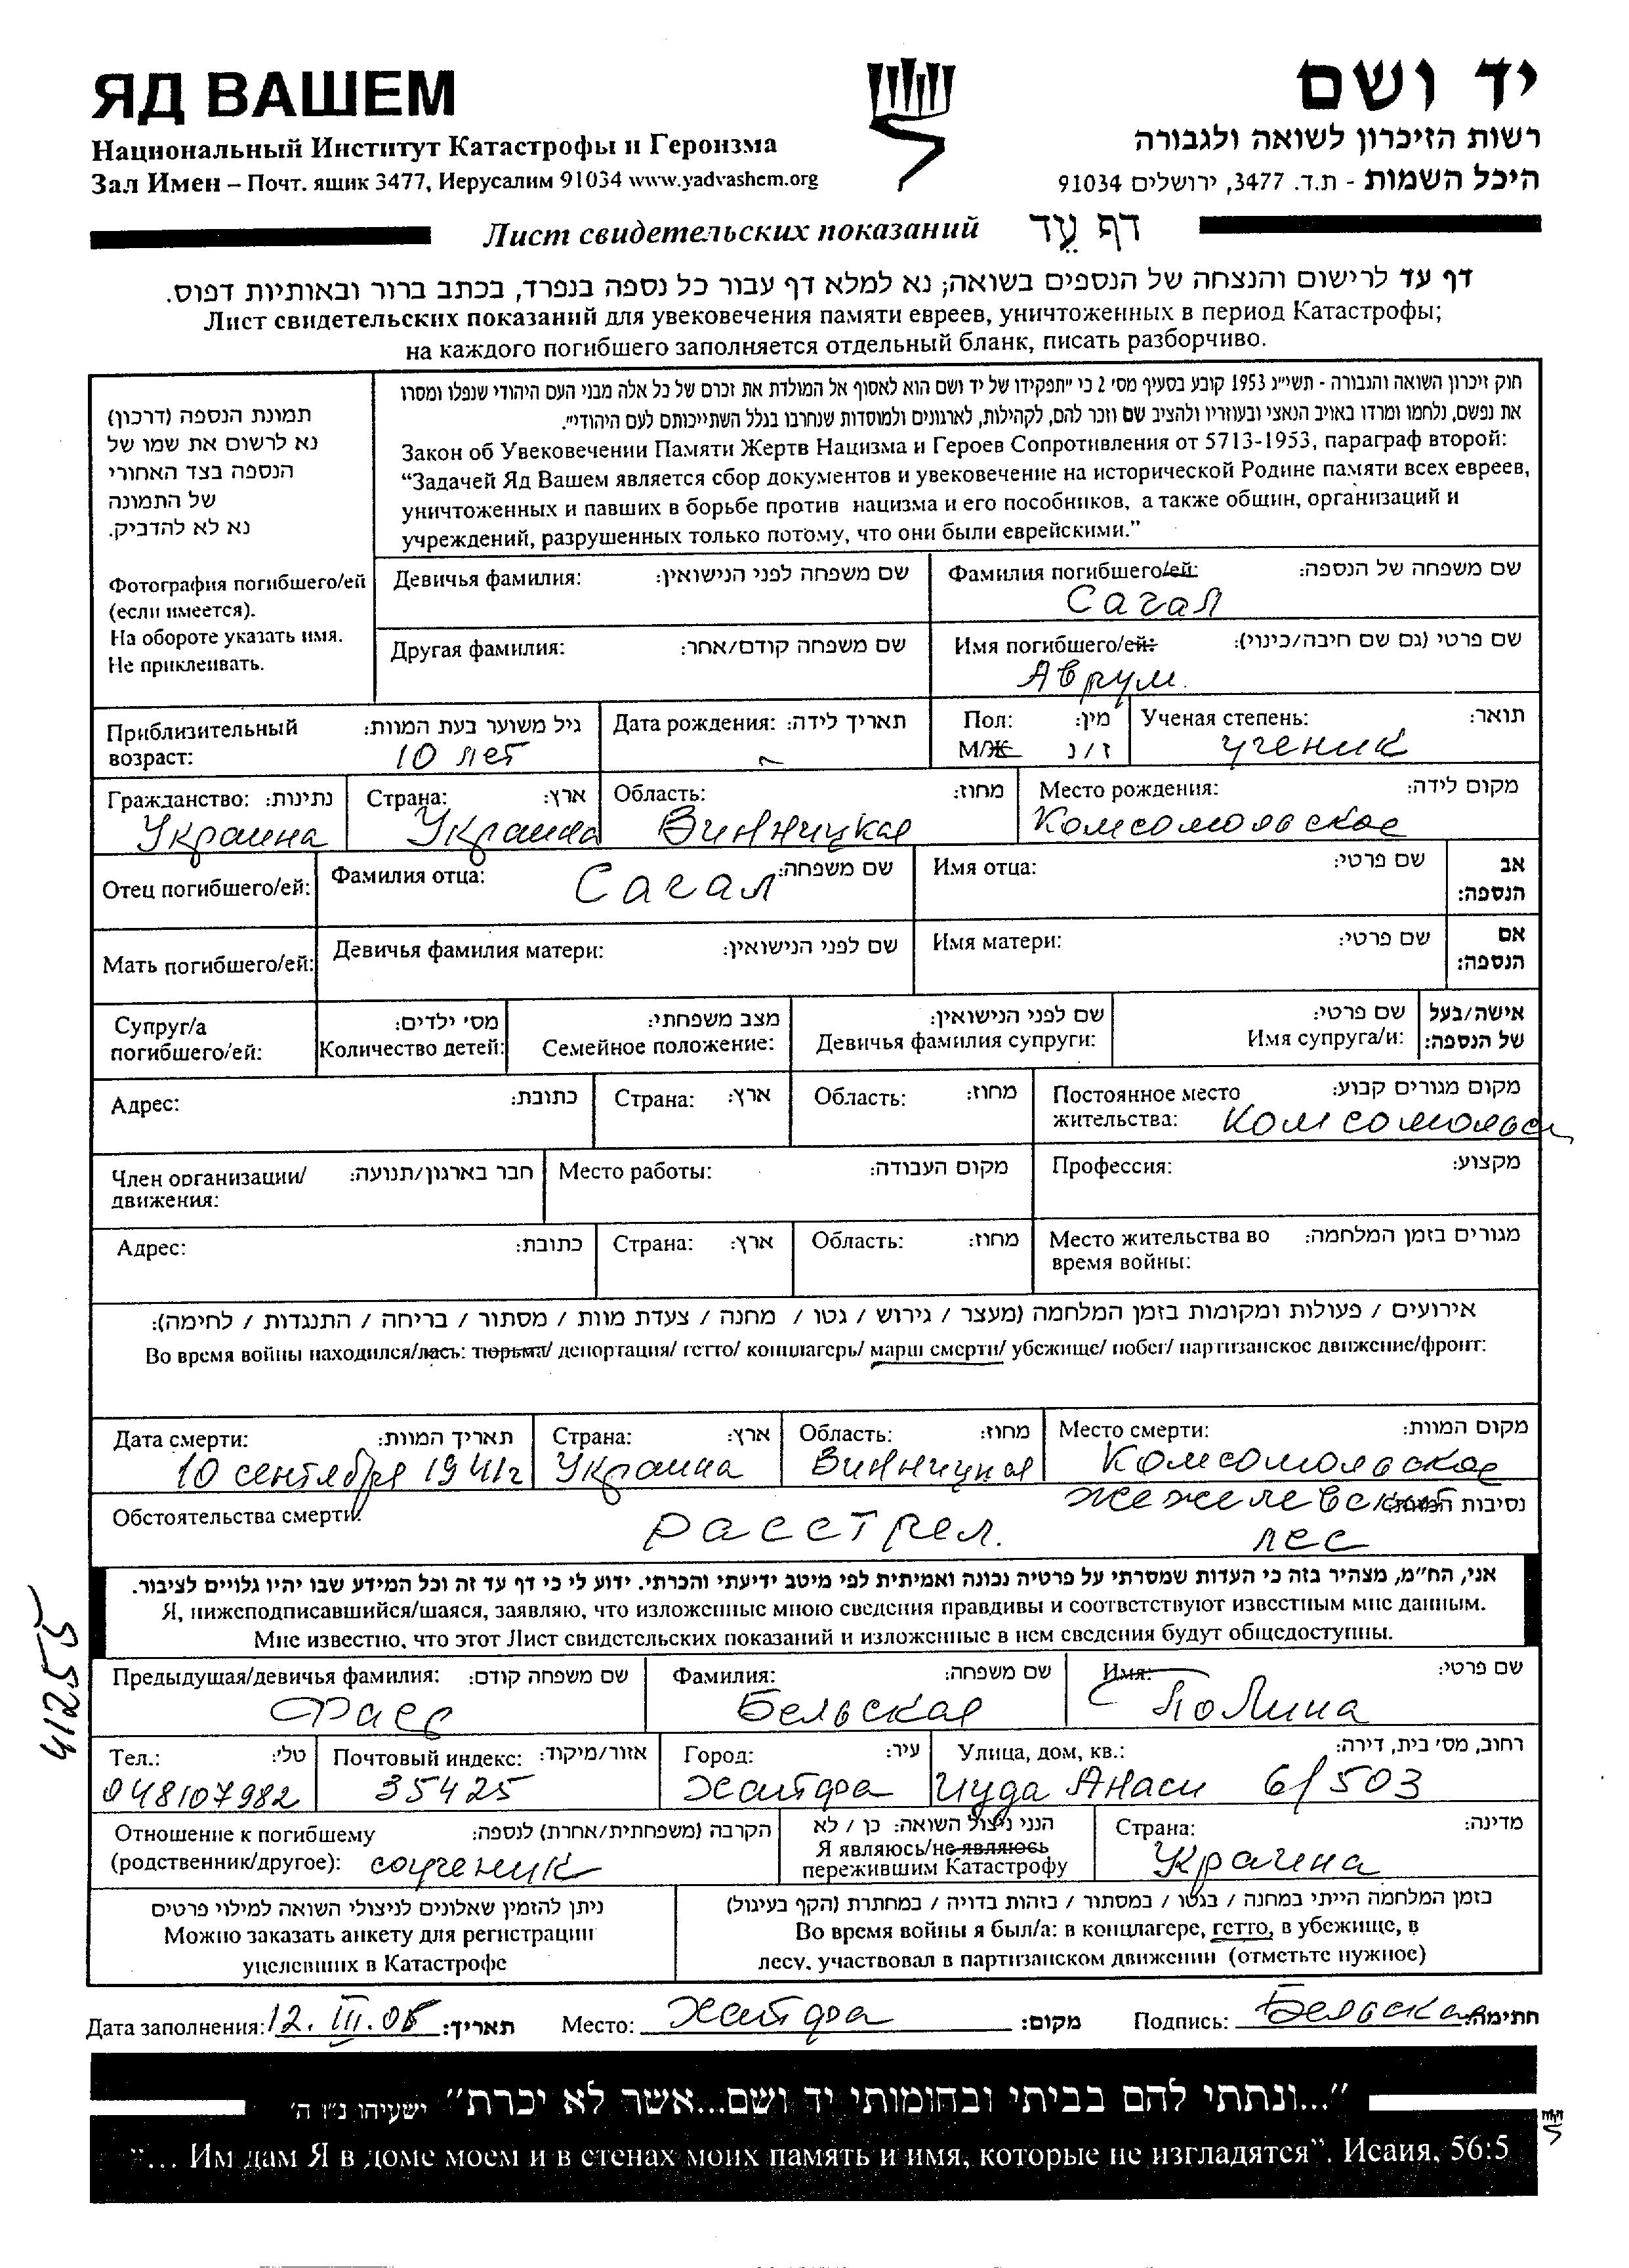 ЯД ВАШЕМ
יד ושם
Национальный Институт Катастрофы и Героизма
רשות הזיכרון לשואה ולגבורה
Зал Имен – Почт. ящик 3477, Иерусалим 91034 www.yadvashem.org
היכל השמות - ת.ד. 3477, ירושלים 91034
Лист свидетельских показаний דף עֵד
דף עד לרישום והנצחה של הנספים בשואה; נא למלא דף עבור כל נספה בנפרד, בכתב ברור ובאותיות דפוס.
Лист свидетельских показаний для увековечения памяти евреев, уничтоженных в период Катастрофы;
на каждого погибшего заполняется отдельный бланк, писать разборчиво.
תמונת הנספה (דרכון)
נא לרשום את שמו של
הנספה בצד האחורי
של התמונה
נא לא להדביק.
Фотография погибшего/ей
(если имеется).
На обороте указать имя.
Не приклеивать.
חוק זיכרון השואה והגבורה - תשי"ג 1953 קובע בסעיף מס' 2 כי "תפקידו של יד ושם הוא לאסוף אל המולדת את זכרם של כל אלה מבני העם היהודי שנפלו ומסרו
את נפשם, נלחמו ומרדו באויב הנאצי ובעוזריו ולהציב שם וזכר להם, לקהילות, לארגונים ולמוסדות שנחרבו בגלל השתייכותם לעם היהודי".
Закон об Увековечении Памяти Жертв Нацизма и Героев Сопротивления от 5713-1953, параграф второй:
“Задачей Яд Вашем является сбор документов и увековечение на исторической Родине памяти всех евреев,
уничтоженных и павших в борьбе против нацизма и его пособников, а также общин, организаций и
учреждений, разрушенных только потому, что они были еврейскими.”
Девичья фамилия: שם משפחה לפני הנישואין: Фамилия погибшего/ей: שם משפחה של הנספה:
Сагал
Другая фамилия: שם משפחה קודם/אחר: Имя погибшего/ей: שם פרטי (גם שם חיבה/כינוי):
Аврум.
Приблизительный возраст: גיל משוער בעת המוות: Дата рождения: תאריך לידה: Пол: מין: Ученая степень: תואר:
10 лет М/Ж ז / נ ученик
Гражданство: נתינות: Страна: ארץ: Область: מחוז: Место рождения: מקום לידה:
Украина Украина Винницкая Комсомольское
Отец погибшего/ей: Фамилия отца: שם משפחה: Имя отца: שם פרטי: אב הנספה:
Сагал
Мать погибшего/ей: Девичья фамилия матери: שם לפני הנישואין: Имя матери: שם פרטי: אם הנספה:
Супруг/а погибшего/ей: מס' ילדים: מצב משפחתי: שם לפני הנישואין: שם פרטי: אישה/בעל של הנספה:
Количество детей: Семейное положение: Девичья фамилия супруги: Имя супруга/и:
Адрес: כתובת: Страна: ארץ: Область: מחוז: Постоянное место жительства: מקום מגורים קבוע:
Член организации/движения: חבר בארגון/תנועה: Место работы: מקום העבודה: Профессия: מקצוע:
Адрес: כתובת: Страна: ארץ: Область: מחוז: Место жительства во время войны: מגורים בזמן המלחמה:
אירועים / פעולות ומקומות בזמן המלחמה (מעצר / גירוש / גטו / מחנה / צעדת מוות / מסתור / בריחה / התנגדות / לחימה):
Во время войны находился/лась: тюрьма/ депортация/ гетто/ концлагерь/ марш смерти/ убежище/ побег/ партизанское движение/фронт:
Дата смерти: תאריך המוות: Страна: ארץ: Область: מחוז: Место смерти: מקום המוות:
10 сентября 1941г Украина Винницкая Комсомольское
Обстоятельства смерти: расстрел. Жежелевский נסיבות המוות:
лес
אני, הח"מ, מצהיר בזה כי העדות שמסרתי על פרטיה נכונה ואמיתית לפי מיטב ידיעתי והכרתי. ידוע לי כי דף עד זה וכל המידע שבו יהיו גלויים לציבור.
Я, нижеподписавшийся/шаяся, заявляю, что изложенные мною сведения правдивы и соответствуют известным мне данным.
Мне известно, что этот Лист свидетельских показаний и изложенные в нем сведения будут общедоступны.
41255
Предыдущая/девичья фамилия: שם משפחה קודם: Фамилия: שם משפחה: Имя: שם פרטי:
Бельская Полина
Тел.: טל': Почтовый индекс: אזור/מיקוד: Город: עיר: Улица, дом, кв.: רחוב, מס' בית, דירה:
048107982 35425 Хайфа Иуда Анаси 6/503
Отношение к погибшему הקרבה (משפחתית/אחרת) לנספה: הנני ניצול השואה: כן / לא Страна: מדינה:
(родственник/другое): соученик Я являюсь/не являюсь пережившим Катастрофу Украина
ניתן להזמין שאלונים לניצולי השואה למילוי פרטים
Можно заказать анкету для регистрации
уцелевших в Катастрофе
בזמן המלחמה הייתי במחנה / בגטו / במסתור / בזהות בדויה / במחתרת (הקף בעיגול)
Во время войны я был/а: в концлагере, гетто, в убежище, в
лесу, участвовал в партизанском движении (отметьте нужное)
Дата заполнения: 12. III. 05 תאריך: Место: Хайфа מקום: Подпись: Бельская חתימה:
"...ונתתי להם בביתי ובחומותי יד ושם...אשר לא יכרת" ישעיהו נ"ו ה'
”... Им дам Я в доме моем и в стенах моих память и имя, которые не изгладятся”. Исаия, 56:5